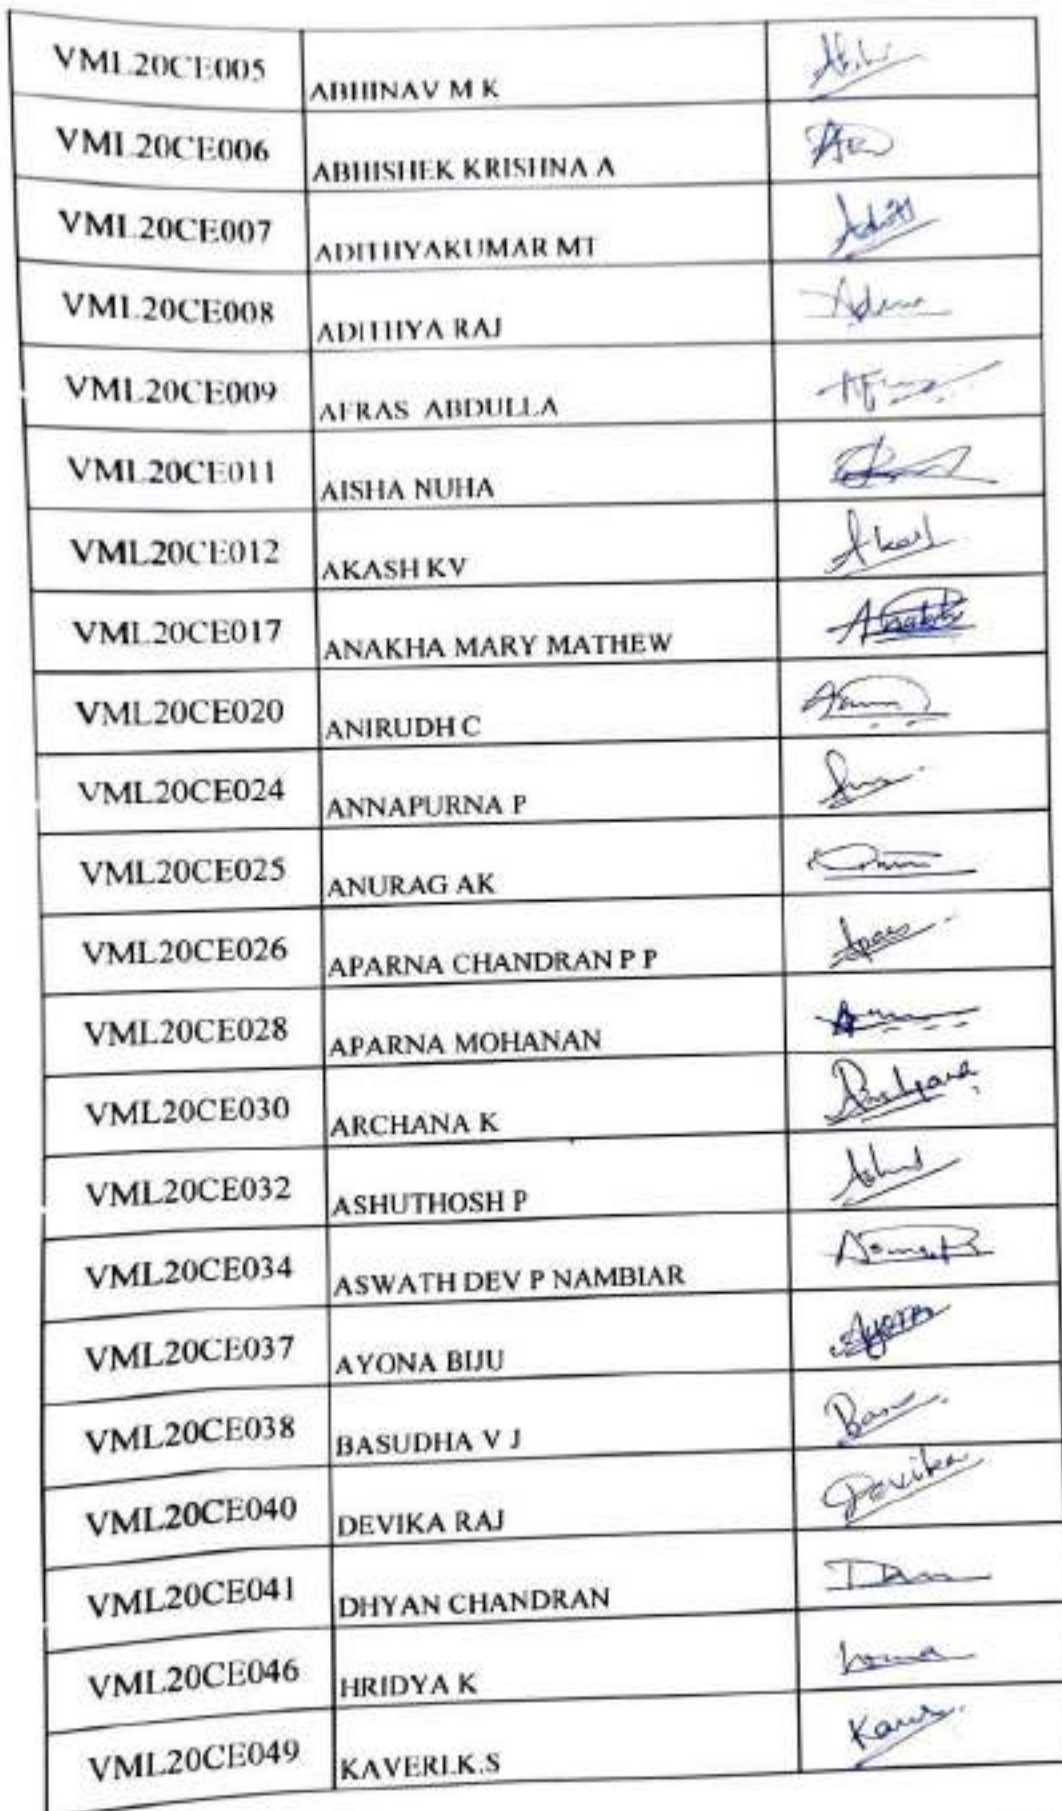 VML20CE005 ABHINAV M K
VML20CE006 ABHISHEK KRISHNA A
VML20CE007 ADITHYAKUMAR MT
VML20CE008 ADITHYA RAJ
VML20CE009 AFRAS ABDULLA
VML20CE011 AISHA NUHA
VML20CE012 AKASH KV Akash
VML20CE017 ANAKHA MARY MATHEW
VML20CE020 ANIRUDH C
VML20CE024 ANNAPURNA P
VML20CE025 ANURAG AK
VML20CE026 APARNA CHANDRAN P P
VML20CE028 APARNA MOHANAN
VML20CE030 ARCHANA K
VML20CE032 ASHUTHOSH P
VML20CE034 ASWATH DEV P NAMBIAR
VML20CE037 AYONA BIJU Ayona
VML20CE038 BASUDHA V J
VML20CE040 DEVIKA RAJ Devika
VML20CE041 DHYAN CHANDRAN
VML20CE046 HRIDYA K
VML20CE049 KAVERI.K.S